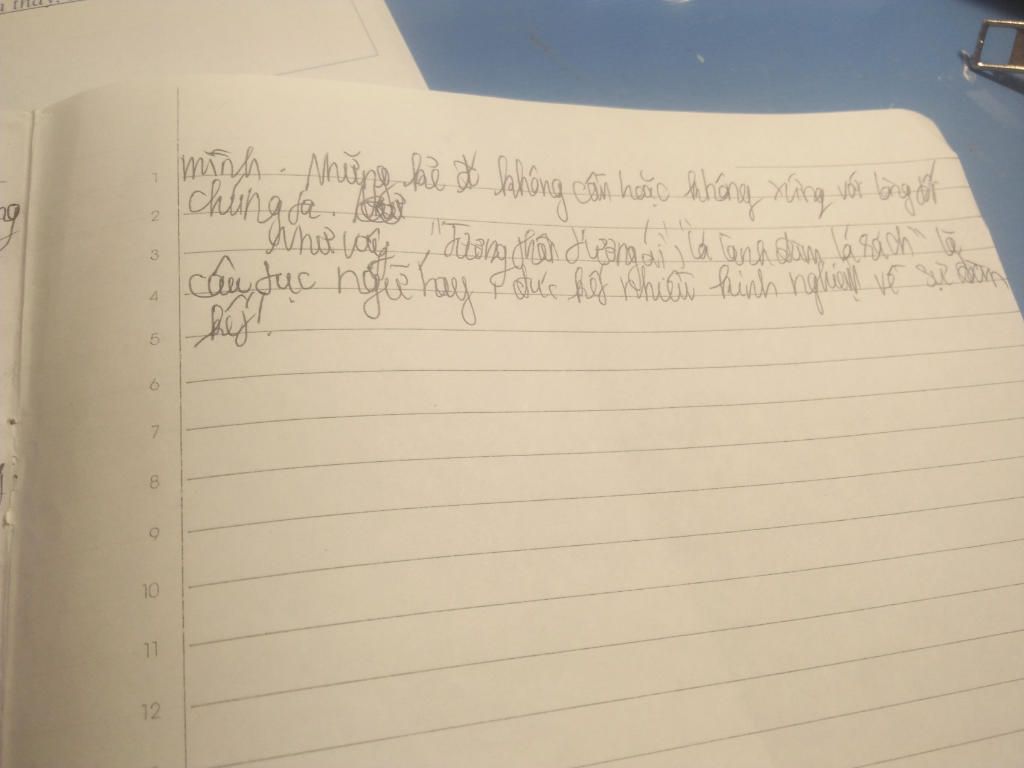 mình. Những kẻ đó không cần hoặc không xứng với lòng tốt
chúng ta.
Như vậy, "Tương thân tương ái", "lá lành đùm lá rách" là
câu tục ngữ hay, đúc kết nhiều kinh nghiệm về sự đoàn
kết.
1
2
3
4
5
6
7
8
9
10
11
12